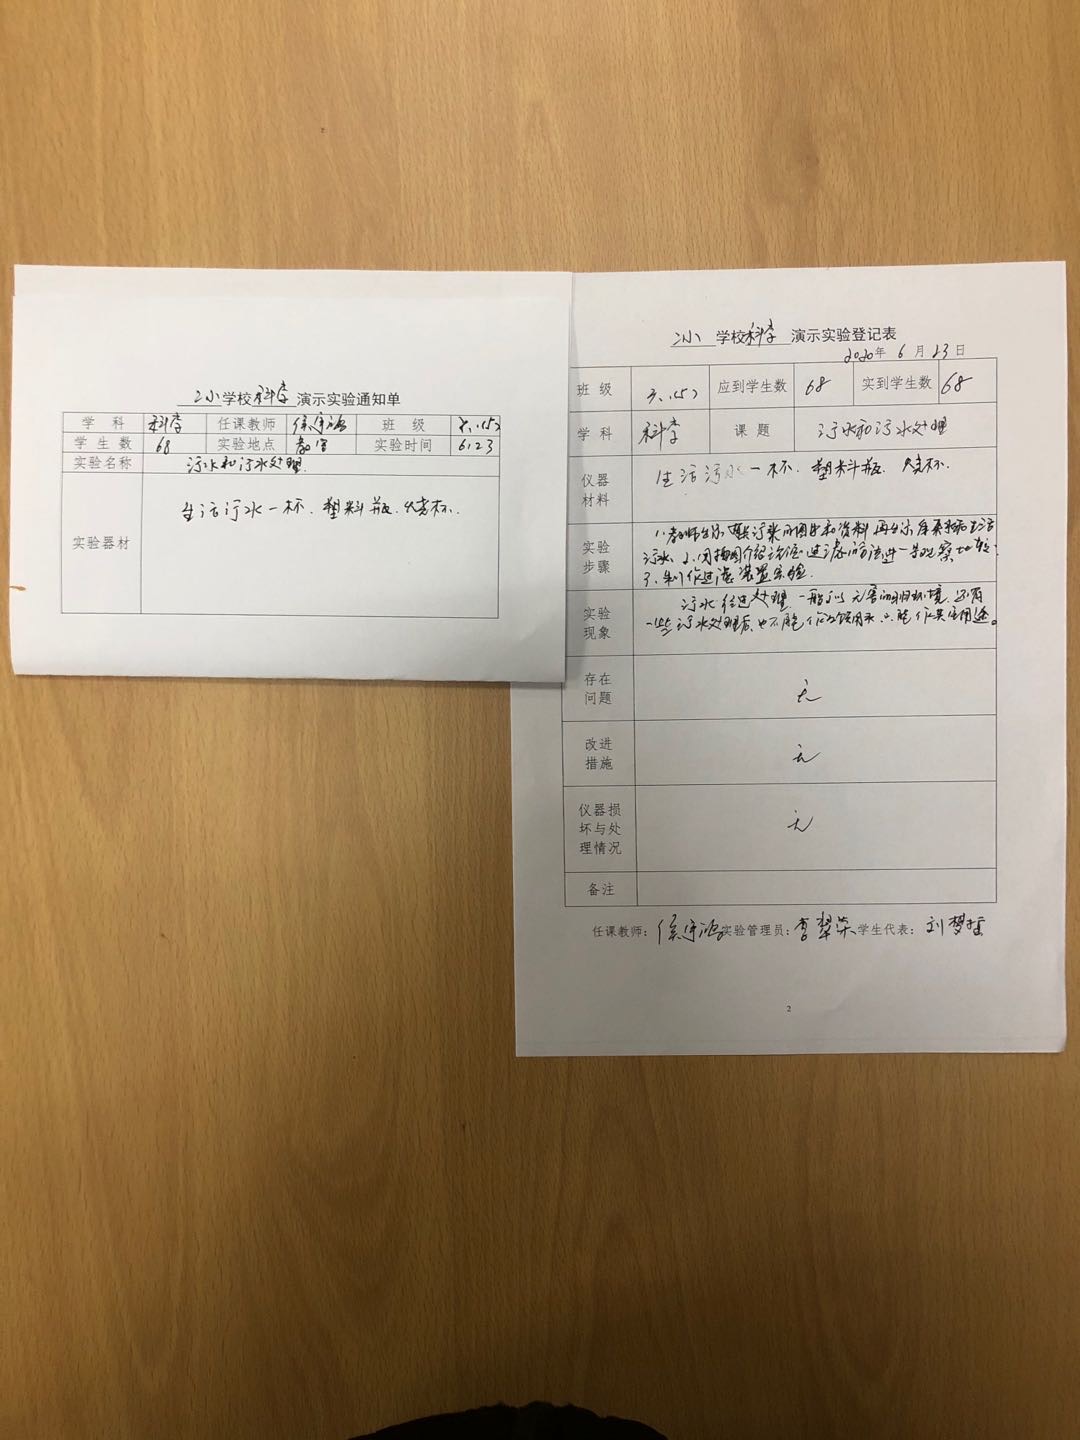 二小学校科学演示实验通知单
学科 科学 任课教师 班级 六.(5)
学生数 68 实验地点 教室 实验时间 6.23
实验名称 污水和污水处理.
实验器材 生活污水一杯.塑料瓶.烧杯.
二小 学校科学 演示实验登记表
2020年 6 月 23 日
班级 六.(5) 应到学生数 68 实到学生数 68
学科 科学 课题 污水和污水处理
仪器材料 生活污水一杯.塑料瓶.烧杯.
实验步骤 1.老师出示 污染的图片和资料 再出示 生活
污水. 2.用插图介绍 过滤的方法进一步观察比较
3.制作过滤装置实验.
实验现象 污水经过处理 一般可以无害的 环境.还有
一些污水处理后.也不能作为饮用水.只能作其它用途。
存在问题 无
改进措施 无
仪器损坏与处理情况 无
备注
任课教师: 实验管理员:李翠荣 学生代表:刘梦
2